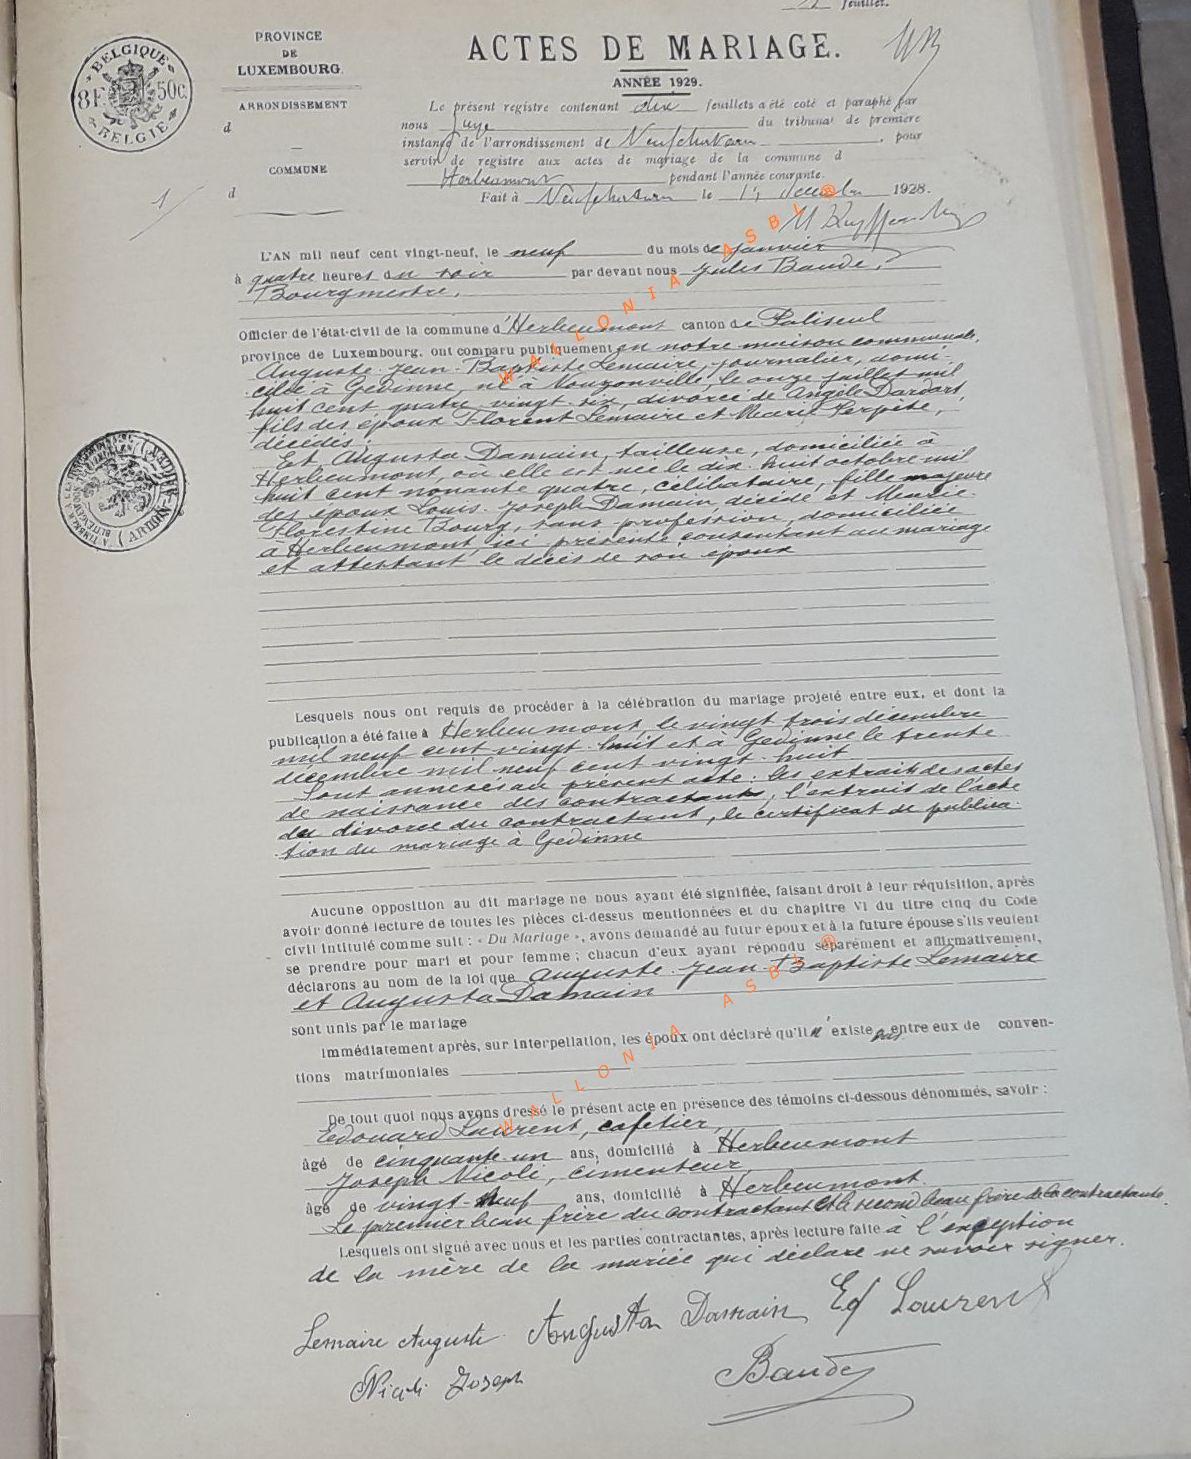 feuillet.
PROVINCE
DE
LUXEMBOURG.
ARRONDISSEMENT
d
COMMUNE
d
BELGIQUE
8F. 50c.
BELGIE
1/
ACTES DE MARIAGE.
ANNÉE 1929.
Le présent registre contenant dix feuillets a été coté et paraphé par
nous juge du tribunal de première
instance de l'arrondissement de Neufchateau, pour
servir de registre aux actes de mariage de la commune d
Herbeumont pendant l'année courante.
Fait à Neufchateau le 14 décembre 1928.
L'AN mil neuf cent vingt-neuf, le neuf du mois de janvier
à quatre heures du soir par devant nous Jules Baude,
Bourgmestre,
Officier de l'état-civil de la commune d'Herbeumont canton de Paliseul
province de Luxembourg, ont comparu publiquement en notre maison communale,
Auguste-Jean-Baptiste Lemaire, journalier, domi-
cilié à Gedinne, né à Nouzonville, le onze juillet mil
huit cent quatre-vingt-six, divorcé de Angèle Dardart,
fils des époux Florent Lemaire et Marie Perpète,
décédés;
Et Augusta Damain, tailleuse, domiciliée à
Herbeumont, où elle est née le dix-huit octobre mil
huit cent nonante quatre, célibataire, fille majeure
des époux Louis-Joseph Damain, décédé et Marie-
Florestine Bourg, sans profession, domiciliée
à Herbeumont, ici présente, consentant au mariage
et attestant le décès de son époux
Lesquels nous ont requis de procéder à la célébration du mariage projeté entre eux, et dont la
publication a été faite à Herbeumont, le vingt-trois décembre
mil neuf cent vingt-huit et à Gedinne le trente
décembre mil neuf cent vingt-huit
Sont annexés au présent acte: les extraits des actes
de naissance des contractants, l'extrait de l'acte
de divorce du contractant, le certificat de publica-
tion du mariage à Gedinne
Aucune opposition au dit mariage ne nous ayant été signifiée, faisant droit à leur réquisition, après
avoir donné lecture de toutes les pièces ci-dessus mentionnées et du chapitre VI du titre cinq du Code
civil intitulé comme suit : « Du Mariage », avons demandé au futur époux et à la future épouse s'ils veulent
se prendre pour mari et pour femme ; chacun d'eux ayant répondu séparément et affirmativement,
déclarons au nom de la loi que Auguste-Jean-Baptiste Lemaire
et Augusta Damain
sont unis par le mariage
Immédiatement après, sur interpellation, les époux ont déclaré qu'il n'existe pas entre eux de conven-
tions matrimoniales
De tout quoi nous avons dressé le présent acte en présence des témoins ci-dessous dénommés, savoir :
Edouard Laurent, cafetier,
âgé de cinquante-un ans, domicilié à Herbeumont
Joseph Nicoli, cimenteur,
âgé de vingt-neuf ans, domicilié à Herbeumont.
Le premier beau frère du contractant et le second beau frère de la contractante.
Lesquels ont signé avec nous et les parties contractantes, après lecture faite à l'exception
de la mère de la mariée qui déclare ne savoir signer.
Lemaire Auguste Augusta Damain Ed Laurent
Nicoli Joseph Baude
WALLONIA ASBL®
WALLONIA ASBL®